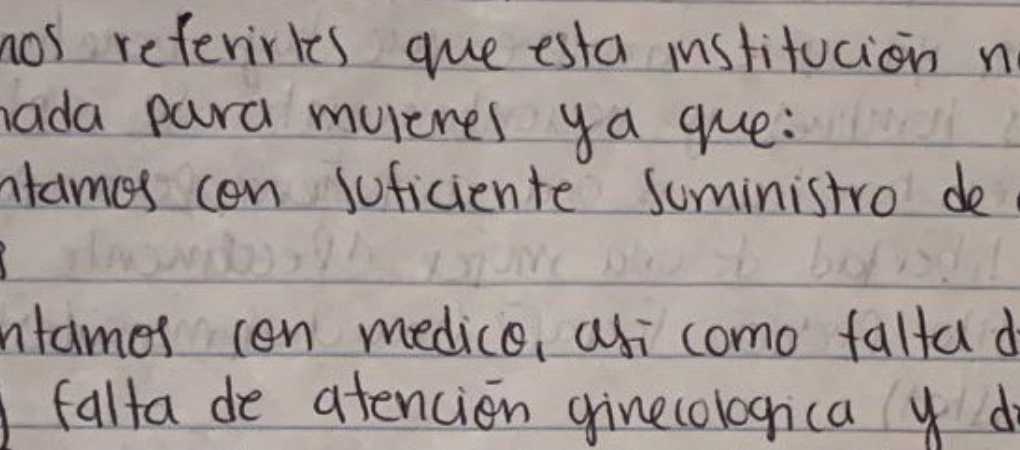 nos referirles que esta institución n
nada para mujeres ya que:
ntamos con suficiente suministro de
ntamos con medico, asi como falta d
falta de atención ginecologica y d